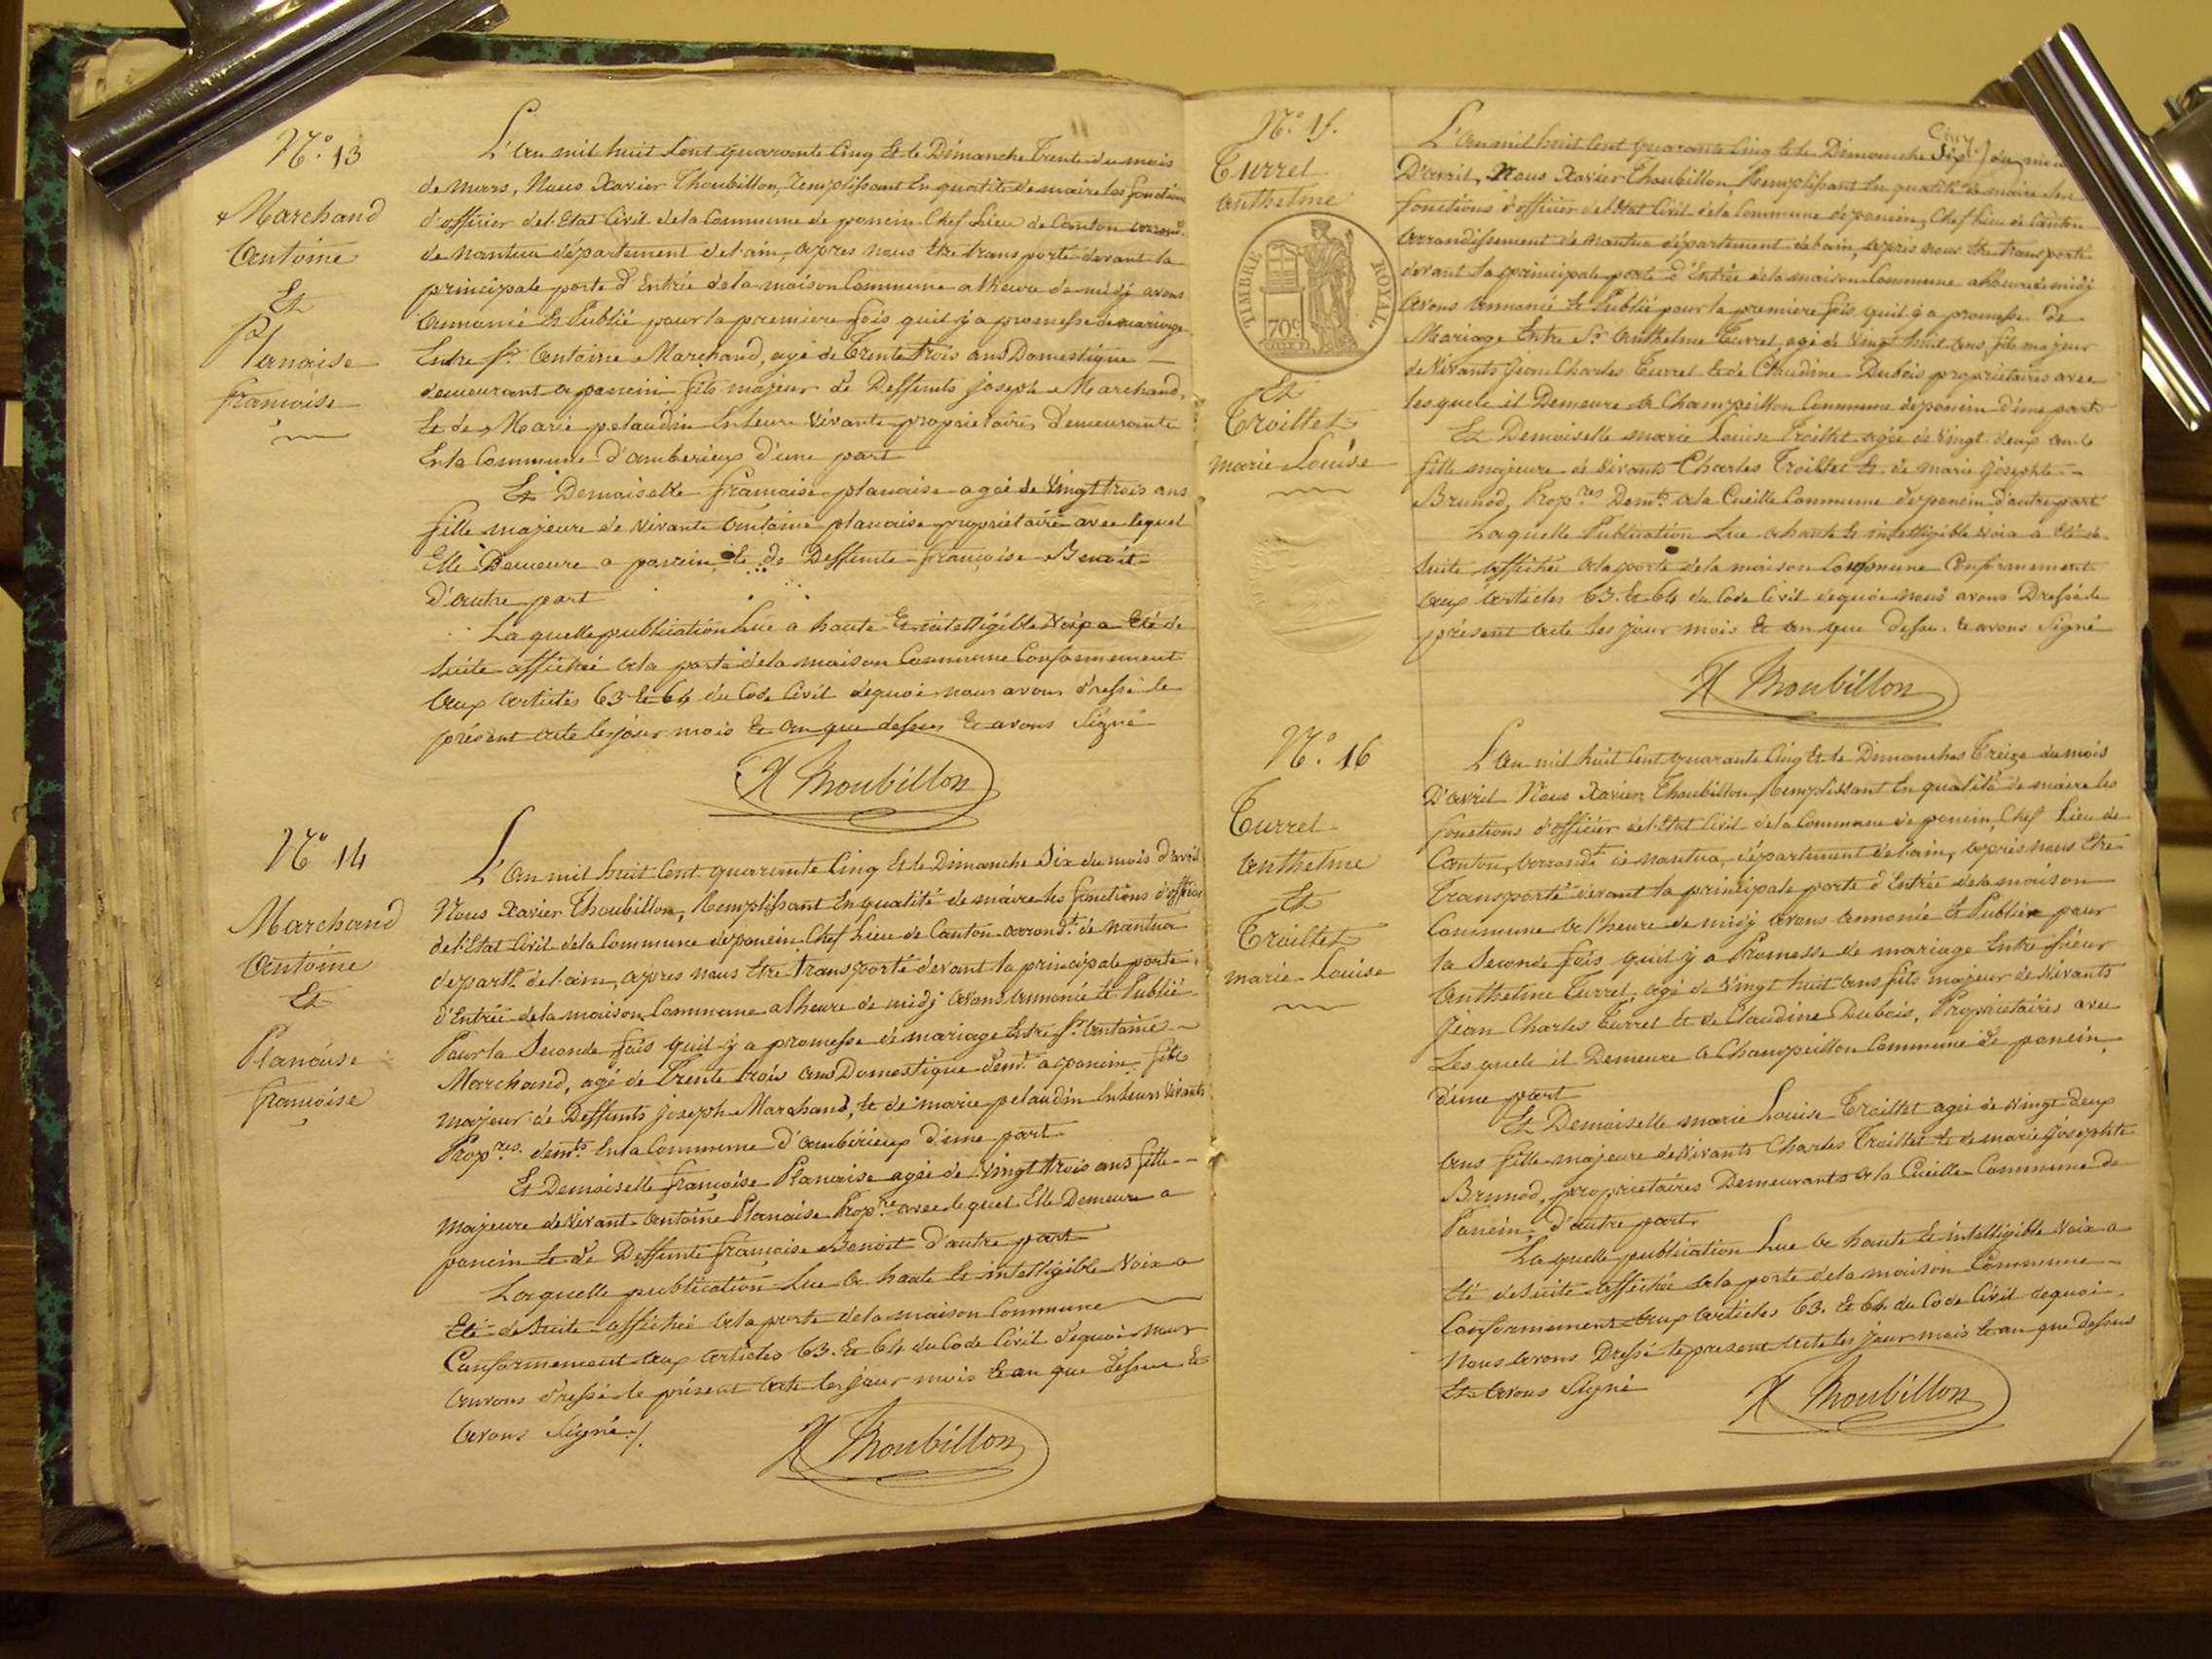 N.º 13
Marchand
Antoine
Et
Planaise
françoise
L'An mil huit Cent quarante Cinq Et le Dimanche Trente du mois
de mars, Nous Xavier Thoubillon, Remplissant En qualité de maire les fonctions
d'officier de l'Etat Civil de la Commune de poncin Chef Lieu de Canton arrond.t
de nantua département de l'ain, apres nous Etre transporté devant la
principale porte d'Entrée de la maison Commune a l'heure de midj avons
Annoncé Et Publié pour la premiere fois quil y a promesse de mariage
Entre S.r Antoine Marchand, agé de Trente trois ans Domestique
demeurant a poncin fils majeur de Deffunts joseph Marchand,
Et de Marie pelaudin En leurs vivants propriétaires Demeurants
En la Commune d'amberieux d'une part
Et Demoiselle françoise planaise agée de Vingt trois ans
fille majeure de vivante Antoine planaise propriétaire avec lequel
Elle Demeure a poncin Et de Deffunte françoise Benoit
d'autre part
Laquelle publication Lue a haute Et intelligible Voix a Eté de
Suite affichée a la porte de la maison Commune Conformement
aux articles 63 Et 64 du Code Civil dequoi nous avons dressé le
présent acte les jour mois Et an que dessus Et avons Signé
X Thoubillon
N.º 14
Marchand
Antoine
Et
Planaise
françoise
L'An mil huit Cent quarante Cinq Et le Dimanche Six du mois d'avril
Nous Xavier Thoubillon, Remplissant En qualité de maire les fonctions d'officier
de l'Etat Civil de la Commune de poncin Chef Lieu de Canton arrond.t de nantua
départ.t de l'ain, apres nous Etre transporté devant la principale porte
d'Entrée de la maison Commune a l'heure de midj avons annoncé Et Publié
Pour la Seconde fois quil y a promesse de mariage Entre S.r Antoine
Marchand, agé de Trente trois ans Domestique dem.t a poncin fils
majeur de Deffunts joseph Marchand, Et de marie pelaudin En leurs vivants
Prop.res dem.ts En la Commune d'ambérieux d'une part
Et Demoiselle françoise Planaise agée de Vingt trois ans fille
majeure de vivant Antoine Planaise Prop.re avec lequel Elle Demeure a
poncin Et de Deffunte françoise Benoit d'autre part
Laquelle publication Lue a haute Et intelligible Voix a
Eté de Suite affichée a la porte de la maison Commune
Conformement aux articles 63. Et 64 du Code Civil dequoi nous
avons dressé le présent acte les jour mois Et an que dessus Et
avons Signé ./.
X Thoubillon
N.º 15.
Turrel
Anthelme
TIMBRE ROYAL.
70 C
Et
Troillet
marie Louise
L'An mil huit Cent quarante Cinq Et le Dimanche Six
D'avril, Nous Xavier Thoubillon, Remplissant En qualité de maire les
fonctions d'officier de l'Etat Civil de la Commune de poncin, Chef Lieu de Canton
arrondissement de Nantua département de l'ain, après nous Etre transporté
devant la principale porte d'Entrée de la maison Commune a l'heure de midj
Avons Annoncé Et Publié pour la premiere fois quil y a promesse de
Mariage Entre S.r Anthelme Turrel, agé de Vingt huit ans, fils majeur
de Vivants Jean Charles Turrel Et de Claudine Dubois propriétaires avec
lesquels il Demeure a Champeillon Commune de poncin d'une part
Et Demoiselle marie Louise Troillet agée de Vingt deux ans
fille majeure de Vivants Charles Troillet Et de marie Josephte
Brunod, Prop.res Dem.ts a la Cueille Commune de poncin d'autre part
Laquelle Publication Lue a haute Et intelligible voix a Eté de
Suite affichée a la porte de la maison Commune Conformement
aux articles 63. Et 64 du Code Civil dequoi nous avons Dressé le
présent acte les jour mois Et an que dessus Et avons Signé
X Thoubillon
N.º 16
Turrel
Anthelme
Et
Troillet
marie Louise
L'An mil huit Cent quarante Cinq Et le Dimanches Treize du mois
D'avril Nous Xavier Thoubillon, Remplissant En qualité de maire les
fonctions d'officier de l'Etat Civil de la Commune de poncin, Chef Lieu de
Canton, arrond.t de nantua, département de l'ain, après nous Etre
Transporté devant la principale porte d'Entrée de la maison
Commune a l'heure de midj avons annoncé Et Publier pour
la Seconde fois quil y a Promesse de mariage Entre Sieur
Anthelme Turrel, agé de Vingt huit ans fils majeur de Vivants
Jean Charles Turrel Et de Claudine Dubois, Propriétaires avec
Lesquels il Demeure a Champeillon Commune de poncin
d'une part
Et Demoiselle marie Louise Troillet agée de Vingt deux
ans fille majeure de Vivants Charles Troillet Et de marie Josephte
Brunod, propriétaires Demeurants a la Cueille Commune de
Poncin, d'autre part.
Laquelle publication Lue a haute Et intelligible Voix a
Eté de Suite affichée a la porte de la maison Commune
Conformement aux articles 63. Et 64 du Code Civil dequoi
Nous avons Dressé le present acte les jour mois Et an que Dessus
Et avons Signé
X Thoubillon